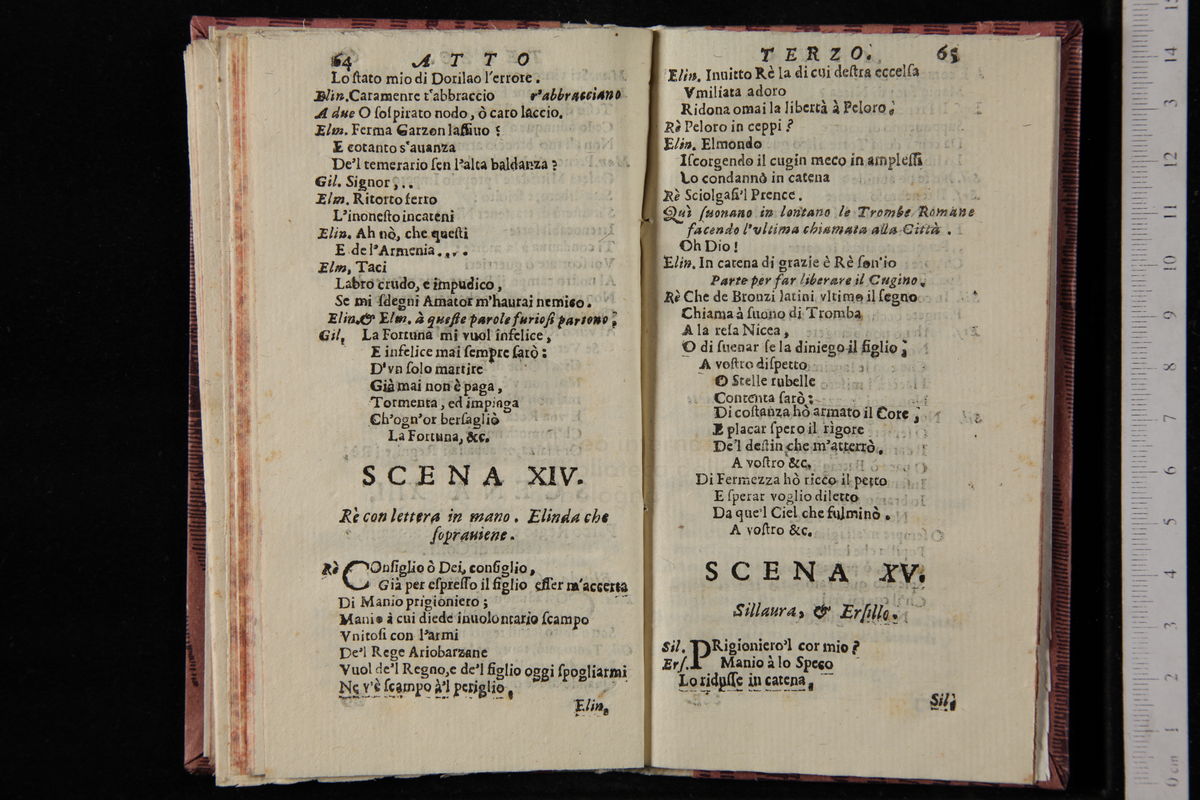 64 ATTO
Lo ſtato mio di Dorilao l'errore.
Elin. Caramenre t'abbraccio r'abbracciano
A due O ſoſpirato nodo, ò caro laccio.
Elm. Ferma Garzon laſſiuo?
E cotanto s'auanza
De'l temerario ſen l'alta baldanza?
Gil. Signor,..
Elm. Ritorto ferro
L'inoneſto incateni
Elin. Ah nò, che queſti
E de l'Armenia....
Elm, Taci
Labro crudo, e impudico,
Se mi ſdegni Amator m'haurai nemico.
Elin. & Elm. à queſte parole furioſi partono;
Gil. La Fortuna mi vuol infelice,
E infelice mai ſempre ſarò:
D'vn ſolo martire
Già mai non è paga,
Tormenta, ed impiaga
Ch'ogn'or berſagliò
La Fortuna, &c.
SCENA XIV.
Rè con lettera in mano. Elinda che
ſoprauiene.
Rè COnſiglio ò Dei, conſiglio,
Già per eſpreſſo il figlio eſſer m'accerta
Di Manio prigioniero;
Manio à cui diede inuolontario ſcampo
Vnitoſi con l'armi
De'l Rege Ariobarzane
Vuol de'l Regno, e de'l figlio oggi ſpogliarmi
Ne v'è ſcampo à'l periglio.
Elin.
TERZO. 65
Elin. Inuitto Rè la di cui deſtra eccelſa
Vmiliata adoro
Ridona omai la libertà à Peloro;
Rè Peloro in ceppi?
Elin. Elmondo
Iſcorgendo il cugin meco in ampleſſi
Lo condannò in catena
Rè Sciolgaſi'l Prence.
Quì ſuonano in lontano le Trombe Romane
facendo l'vltima chiamata alla Città.
Oh Dio!
Elin. In catena di grazie è Rè ſon'io
Parte per far liberare il Cugino.
Rè Che de Bronzi latini vltimo il ſegno
Chiama à ſuono di Tromba
A la reſa Nicea,
O di ſuenar ſe la diniego il figlio;
A voſtro diſpetto
O Stelle rubelle
Contenta ſarò:
Di coſtanza hò armato il Core;
E placar ſpero il rigore
De'l deſtin che m'atterrò.
A voſtro &c.
Di Fermezza hò ricco il petto
E ſperar voglio diletto
Da que'l Ciel che fulminò.
A voſtro &c.
SCENA XV.
Sillaura, & Erſillo.
Sil. PRigioniero'l cor mio?
Erſ. Manio à lo Speco
Lo riduſſe in catena,
Sil.